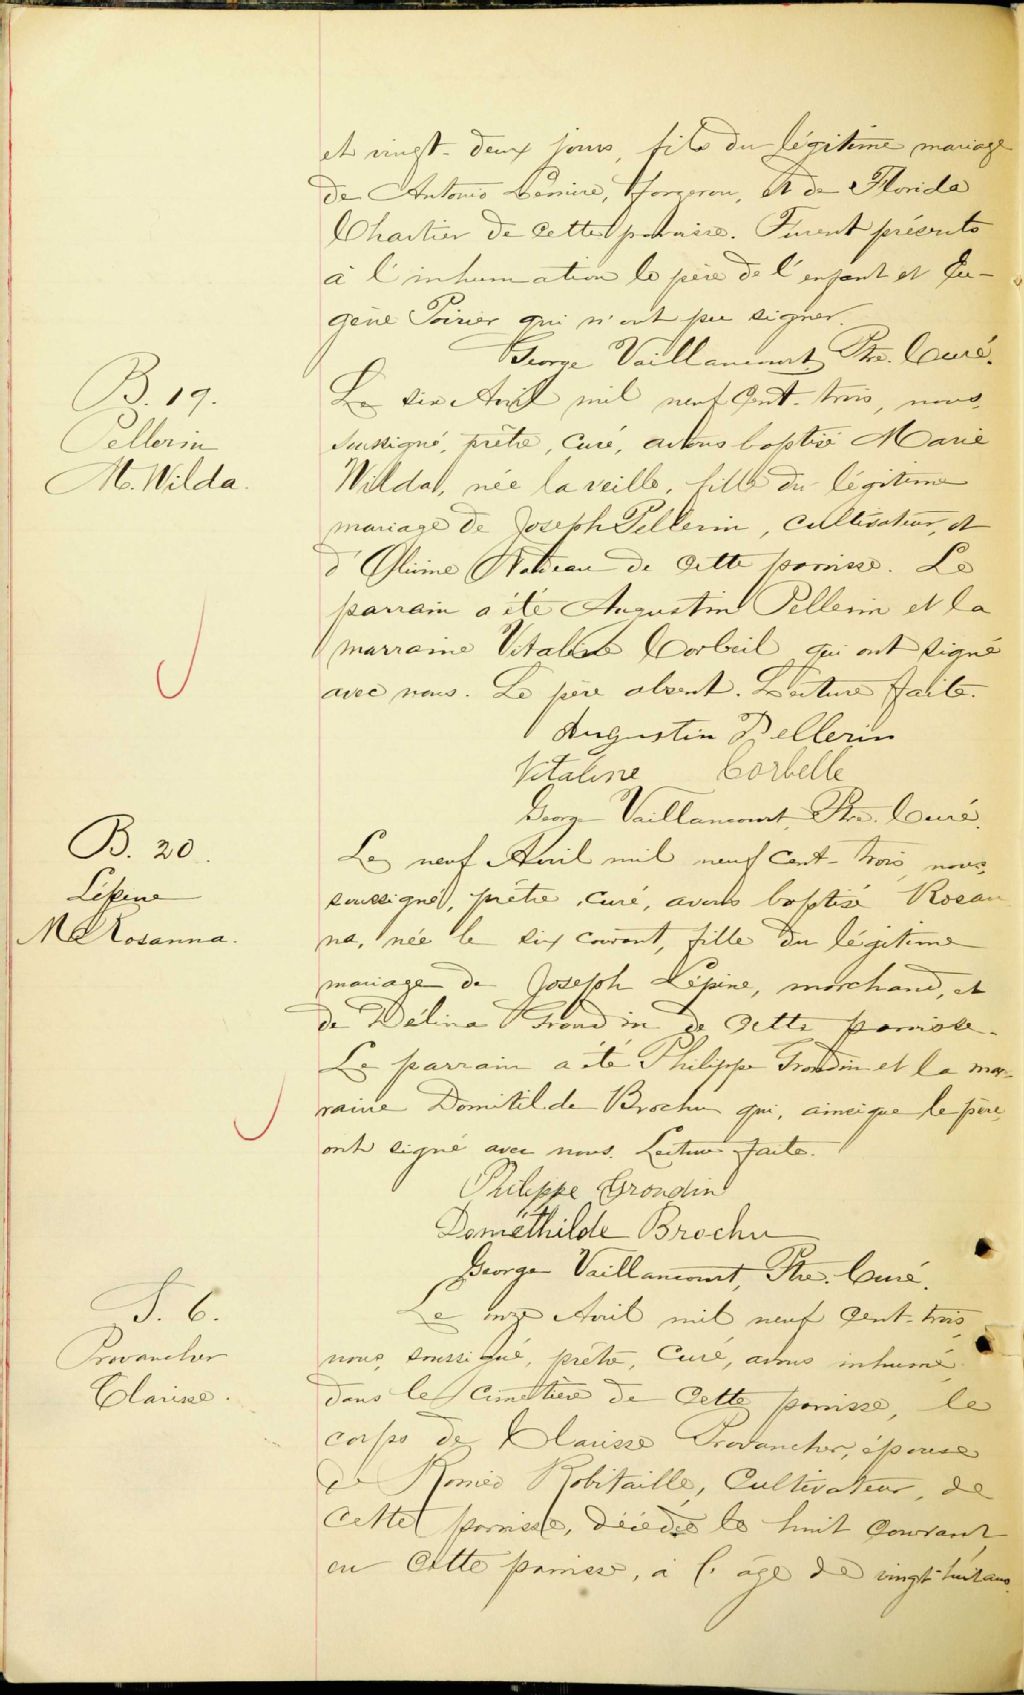 et vingt-deux jours, fils du légitime mariage
de Antonio Lemire, forgeron, et de Florida
Chartier de cette paroisse. Furent présents
à l'inhumation le père de l'enfant et Eu-
gène Poirier qui n'ont pu signer.
George Vaillancourt, Ptre. Curé.
B. 19.
Pellerin
M. Wilda.
Le six Avril mil neuf Cent-trois, nous,
soussigné, prêtre, curé, avons baptisé Marie
Wilda, née la veille, fille du légitime
mariage de Joseph Pellerin, cultivateur, et
d'Olivine Nadeau de cette paroisse. Le
parrain a été Augustin Pellerin et la
marraine Vitaline Corbeil qui ont signé
avec nous. Le père absent. Lecture faite.
Augustin Pellerin
Vitaline Corbelle
George Vaillancourt, Ptre. Curé.
B. 20.
Lépine
M. Rosanna.
Le neuf Avril mil neuf Cent-trois, nous,
soussigné, prêtre, curé, avons baptisé Rosan
na, née le six courant, fille du légitime
mariage de Joseph Lépine, marchand, et
de Délina Grondin de cette paroisse.
Le parrain a été Philippe Grondin et la mar-
raine Domitilde Brochu qui, ainsi que le père,
ont signé avec nous. Lecture faite.
Philippe Grondin
Dométhilde Brochu
George Vaillancourt, Ptre. Curé.
S. 6.
Provancher
Clarisse.
Le onze Avril mil neuf Cent-trois,
nous, soussigné, prêtre, Curé, avons inhumé,
dans le cimetière de cette paroisse, le
corps de Clarisse Provancher, épouse
de Roméo Robitaille, Cultivateur, de
cette paroisse, décédée le huit courant
en cette paroisse, à l'âge de vingt-huit ans